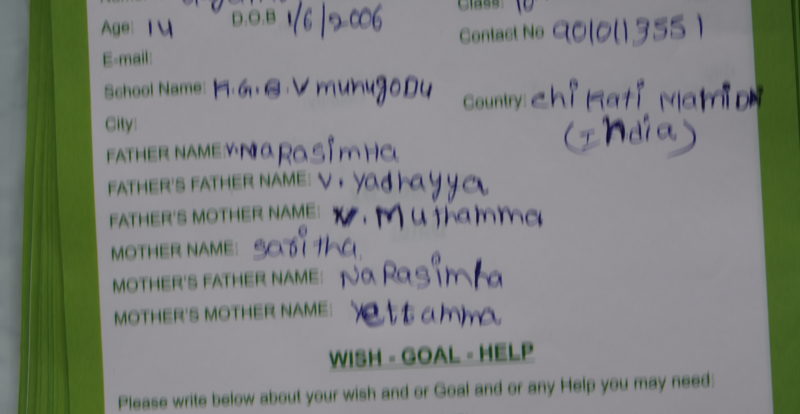 Class: 10
Age: 14 D.O.B 1/6/2006
Contact No 9010113551
E-mail:
School Name: K.G.B.V munugoDu
Country: chi Kati Mamidi
(India)
City:
FATHER NAME: V.NaRasimHa
FATHER'S FATHER NAME: V. Yadhayya
FATHER'S MOTHER NAME: V. Muthamma
MOTHER NAME: Saritha
MOTHER'S FATHER NAME: NaRasimha
MOTHER'S MOTHER NAME: Yettamma
WISH - GOAL - HELP
Please write below about your wish and or Goal and or any Help you may need: